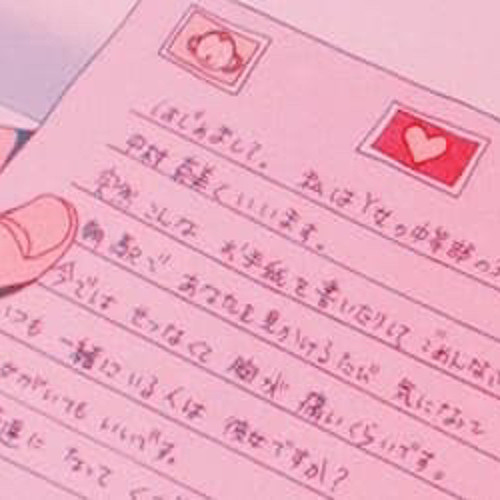 はじめまして。 私はY女の中等部の
中村 といいます。
突然こんな お手紙を書いたりして ごめんな
朝 駅で あなたを見かけるたび 気になって
今では せつなくて 胸が 痛いくらいです。
いつも 一緒にいる人は 彼女ですか?
がいても いいです。
なって